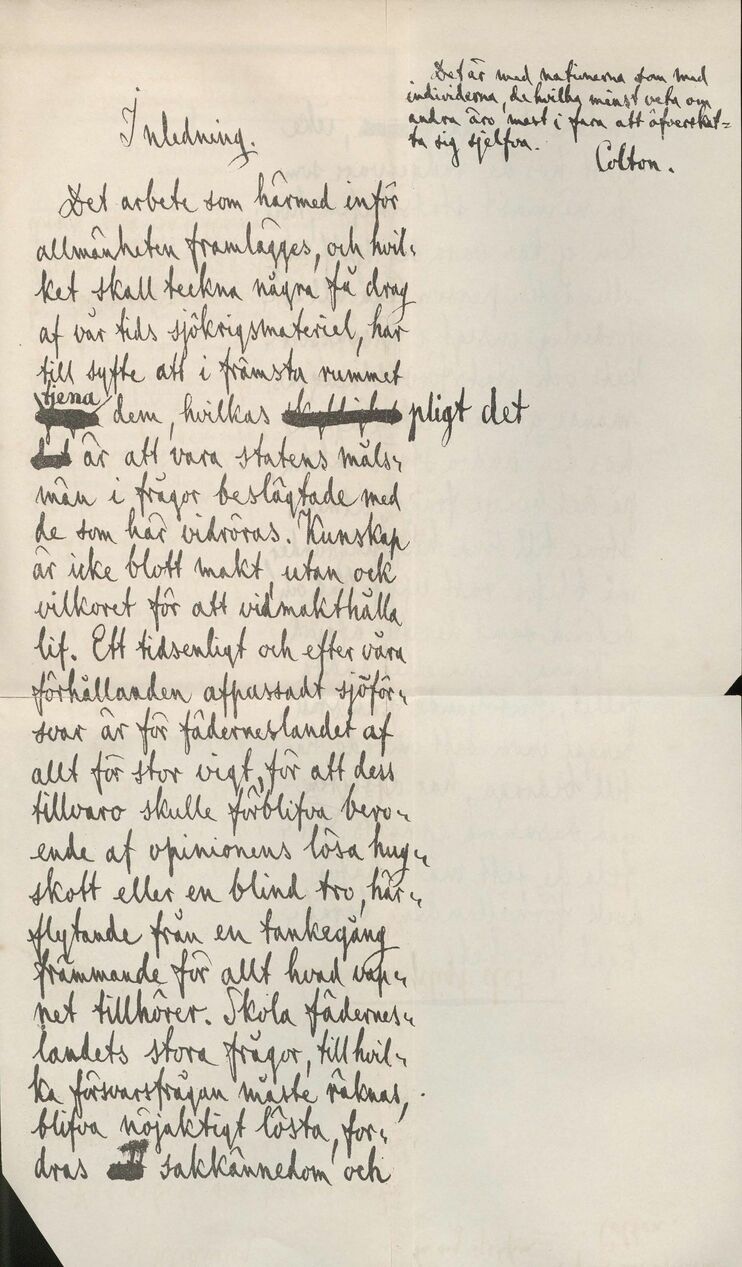 Det är med nationerna som med
individerna, de hvilka minst veta om
andra äro mest i fara att öfverskat=
ta sig sjelfva.
Colton.
Inledning.
Det arbete som härmed inför
allmänheten framlägges, och hvil-
ket skall teckna några få drag
af vår tids sjökrigsmateriel, har
till syfte att i främsta rummet
tjena
dem, hvilkas pligt det
är att vara statens måls-
män i frågor beslägtade med
de som här vidröras. Kunskap
är icke blott makt, utan ock
vilkoret för att vidmakthålla
lif. Ett tidsenligt och efter våra
förhållanden afpassadt sjöför-
svar är för fäderneslandet af
allt för stor vigt, för att dess
tillvaro skulle förblifva bero-
ende af opinionens lösa hug-
skott eller en blind tro, här-
flytande från en tankegång
främmande för allt hvad vap-
net tillhörer. Skola fädernes-
landets stora frågor, till hvil-
ka försvarsfrågan måste räknas,
blifva nöjaktigt lösta, for-
dras sakkännedom och